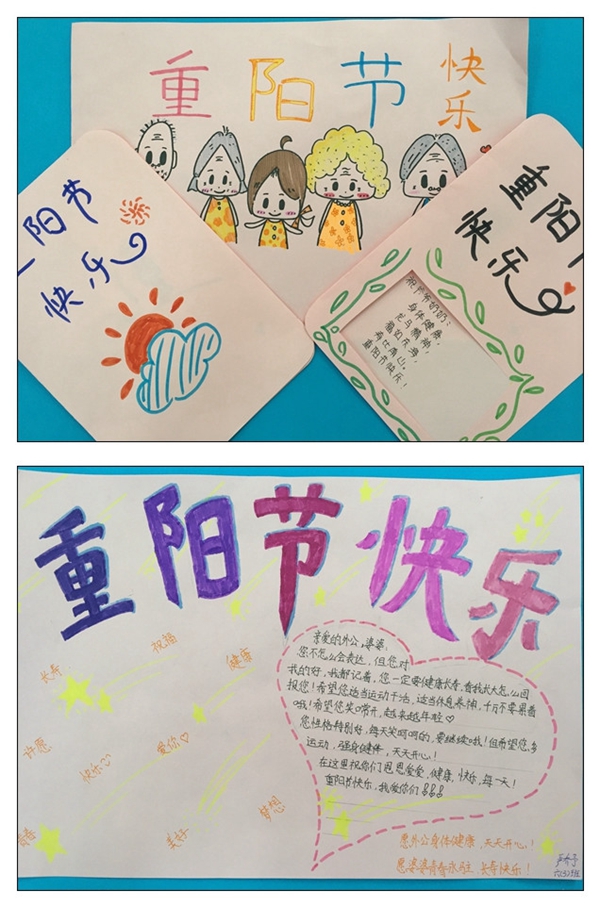 重阳节
快
乐
阳节
快乐
重阳
快乐
祝爷爷奶奶:
身体健康,
龙马精神,
福如东海,
寿比南山。
重阳节快乐!
重阳节快乐
祝福
长寿
健康
许愿
快乐
爱你
美好
梦想
青春
亲爱的外公,婆婆:
您不怎么会表达,但您对
我的好,我都记着,您一定要健康长寿,看我长大怎么回
报您!希望您适当运动干活,适当休息养神,千万不要累着
哦!希望您笑口常开,越来越年轻
您性格特别好,每天笑呵呵的,要继续哦!但希望您,多
运动,强身健体,天天开心!
在这里祝你们恩恩爱爱,健康,快乐,每一天!
重阳节快乐,我爱你们!!!
愿外公身体健康,天天开心!
愿婆婆青春永驻,长寿快乐!